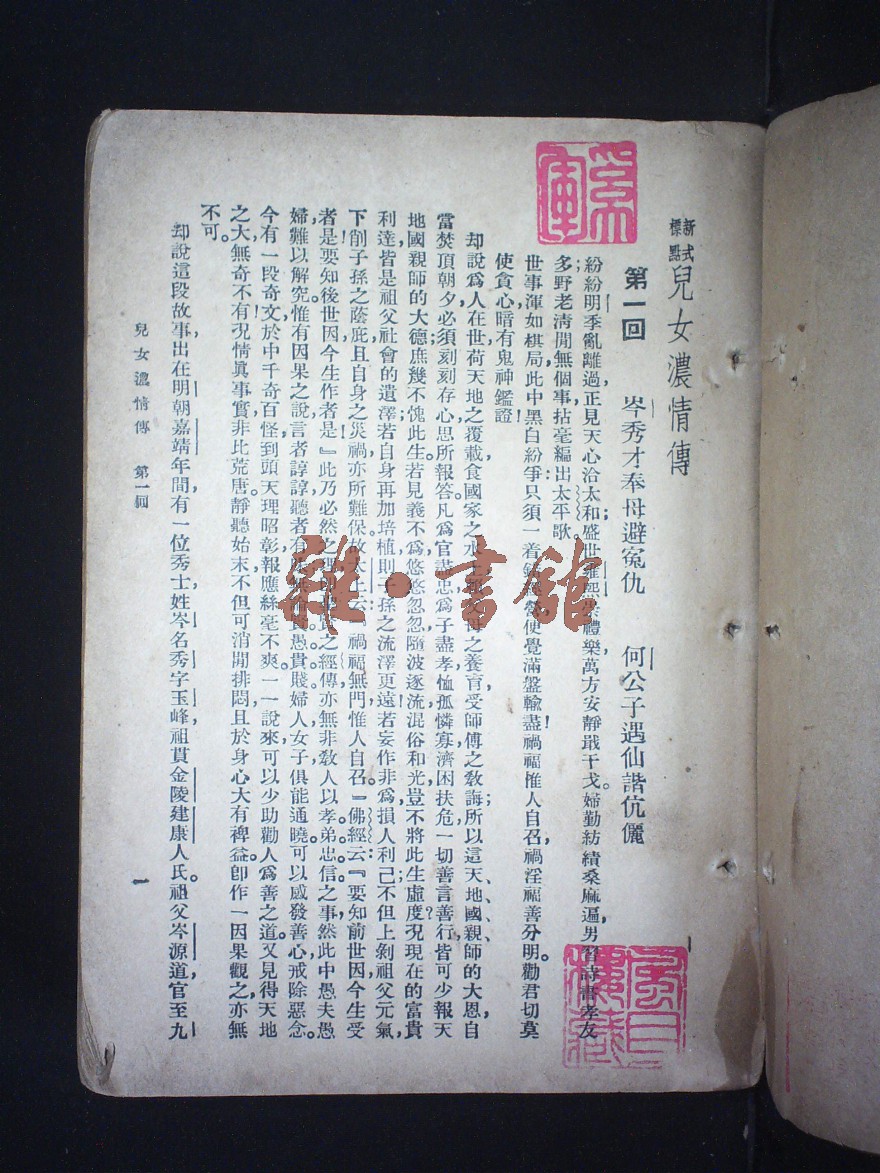 新式標點 兒女濃情傳
第一回　岑秀才奉母避冤仇　何公子遇仙諧伉儷
紛紛明季亂離過，正見天心洽太和；盛世雍熙崇禮樂，萬方安靜戢干戈。婦勤紡績桑麻遍，男習詩書孝友
多；野老清閒無個事，拈毫編出太平歌。
世事渾如棋局，此中黑白紛爭，只須一着便覺滿盤輸盡！禍福惟人自召，禍淫福善分明。勸君切莫
使貪心，暗有鬼神鑑證！
却說爲人在世，荷天地之覆載，食國家之水土，之養育，受師傅之敎誨；所以這天、地、國、親、師的大恩，自
當焚頂朝夕，必須刻刻存心，思所報答。凡爲官盡忠，爲子盡孝，恤孤憐寡，濟困扶危，一切善言善行，皆可少報天
地國親師的大德，庶幾不愧此生；若見義不爲，悠悠忽忽，隨波逐流，混俗和光，豈不將此生虛度？况現在的富貴
利達，皆是祖父社會的遺澤；若自身再加培植，則子孫之流澤更遠；若妄作非爲，損人利己，不但上剝祖父元氣，
下削子孫之蔭庇，且自身之災禍，亦所難保。故太上云：『禍福無門，惟人自召。』佛經云：『要知前世因，今生受
者是！要知後世因，今生作者是！』此乃必然之理，之經傳，亦無非敎人以孝弟忠信之事。然此中愚夫愚
婦，難以解究。惟有因果之說，言者諄諄，聽者有，無論賢愚貴賤，婦人女子，俱能通曉，可以感發善心，戒除惡念。
今有一段奇文，於中千奇百怪，到頭天理昭彰，報應絲毫不爽。一一說來，可以少助勸人爲善之道，又見得天地
之大，無奇不有；况情眞事實，非比荒唐，靜聽始末，不但可消閒排悶，且於身心大有裨益，卽作一因果觀之，亦無
不可。
却說這段故事，出在明朝嘉靖年間，有一位秀士，姓岑名秀字玉峰，祖貫金陵建康人氏，祖父岑源，道官至九
兒女濃情傳　第一回
一
雜·書館